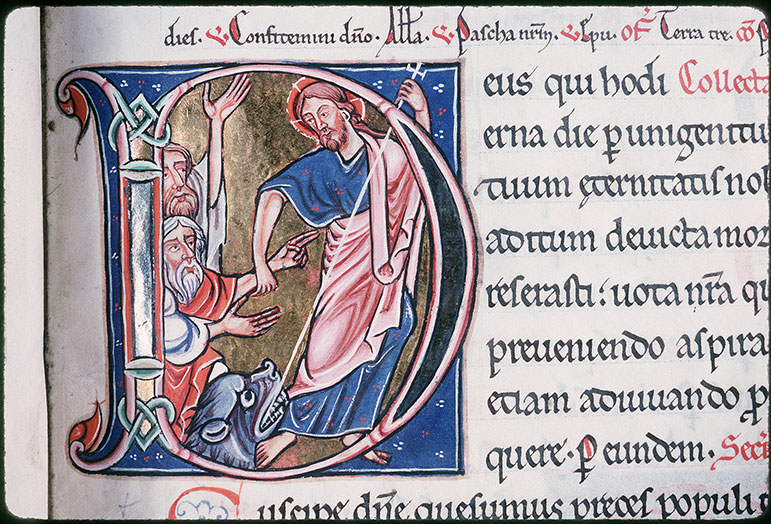 dies. V Confitemini dño. Alla. V Pascha nrm. V Epu. Of Terra tre. Cō
Deus qui hodi Collecta
erna die p unigenitu
tuum ęternitatis nob
aditum devicta mor
reserasti: vota nra qu
preveniendo aspira
etiam adiuuando p
quere. p eundem. Secr
Suscipe dñe quesumus preces populi t